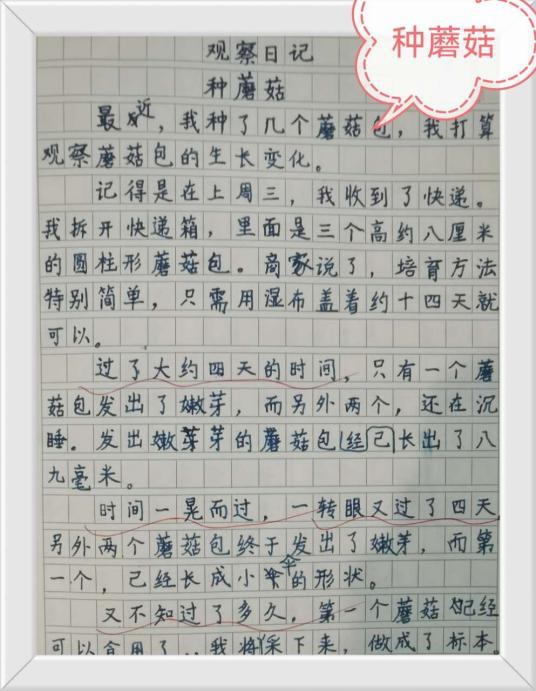 种蘑菇
观察日记
种蘑菇
最近，我种了几个蘑菇包，我打算
观察蘑菇包的生长变化。
记得是在上周三，我收到了快递。
我拆开快递箱，里面是三个高约八厘米
的圆柱形蘑菇包。商家说了，培育方法
特别简单，只需用湿布盖着约十四天就
可以。
过了大约四天的时间，只有一个蘑
菇包发出了嫩芽，而另外两个，还在沉
睡。发出嫩芽芽的蘑菇包经己长出了八
九毫米。
时间一晃而过，一转眼又过了四天，
另外两个蘑菇包终于发出了嫩芽，而第
一个，已经长成小伞的形状。
又不知过了多久，第一个蘑菇已经
可以食用了，我将采下来，做成了标本。